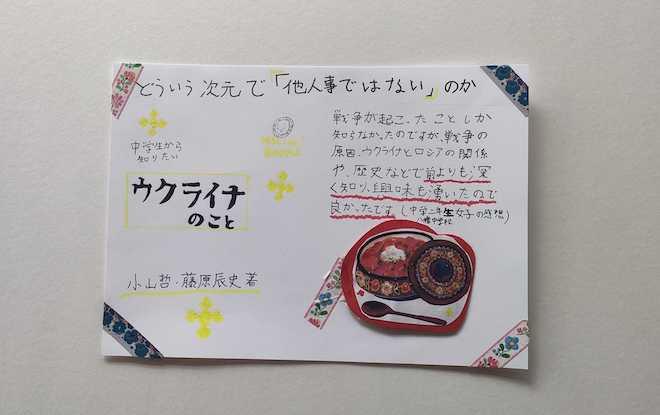 どういう次元で「他人事ではない」のか
中学生から
知りたい
ウクライナ
のこと
小山哲・藤原辰史著
戦争が起こったことしか
知らなかったのですが、戦争の
原因、ウクライナとロシアの関係
や、歴史などで前よりも深
く知り、興味も湧いたので
良かったです(中学二年生女子の感想)
八幡中学校